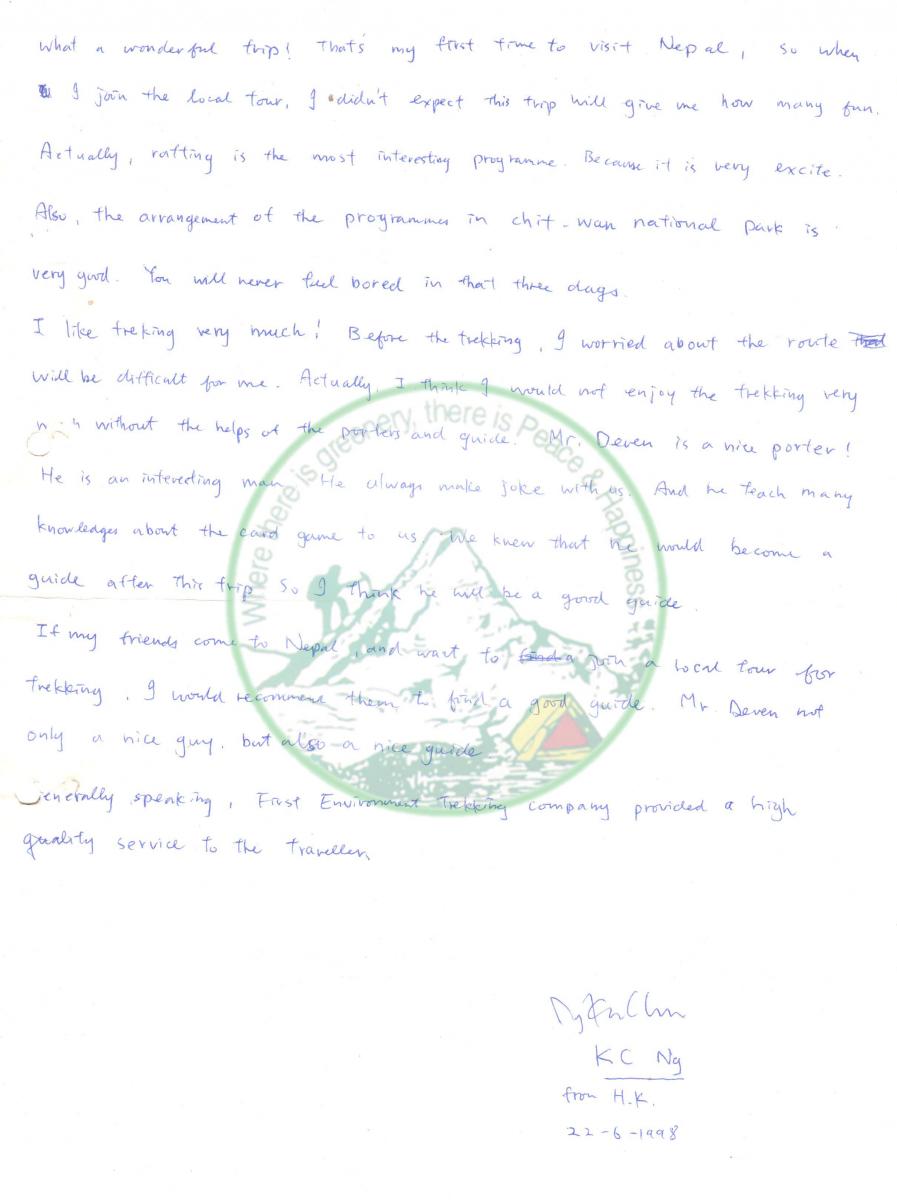 What a wonderful trip! That's my first time to visit Nepal, so when
I join the local tour, I didn't expect this trip will give me how many fun.
Actually, rafting is the most interesting programme. Because it is very excite.
Also, the arrangement of the programmes in chit-wan national park is
very good. You will never feel bored in that three days.
I like treking very much! Before the trekking, I worried about the route
will be difficult for me. Actually, I think I would not enjoy the trekking very
without the helps of the porters and guide. Mr. Deven is a nice porter!
He is an interesting man. He always make joke with us. And he teach many
knowledges about the card game to us. We knew that he would become a
guide after this trip. So I think he will be a good guide.
If my friends come to Nepal, and want to join a local tour for
trekking, I would recomment them to find a good guide. Mr. Deven not
only a nice guy, but also a nice guide
Generally speaking, First Environment Trekking company provided a high
quality service to the traveller.
Where there is greenery, there is Peace & Happiness
KC Ng
from H.K.
22-6-1998